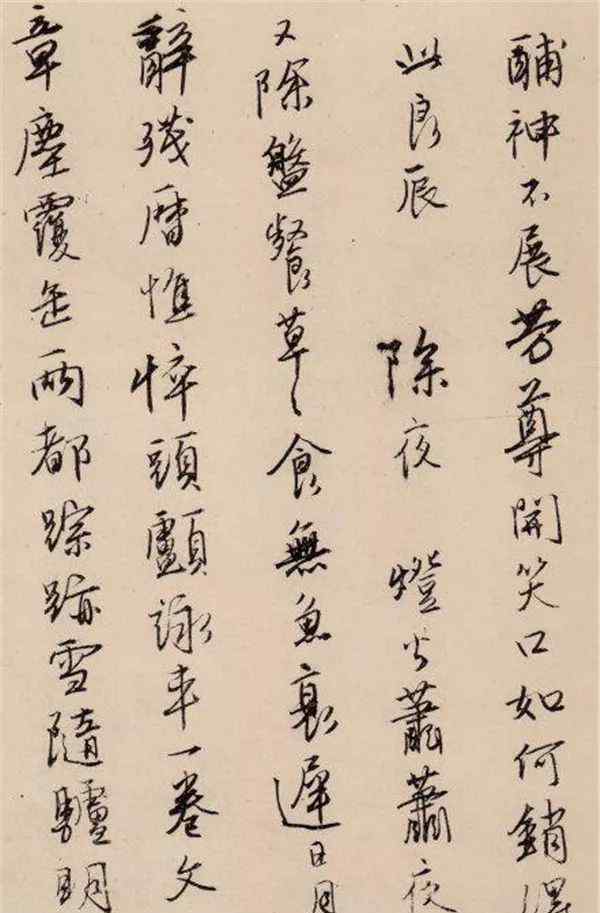 酺神不展芳尊開笑口如何銷得
此良辰 除夜 燈火蕭蕭夜
又除盤餐草〻食無魚衰遲日月
辭殘曆憔悴頭顱詠車一卷文
章塵覆缶兩都踪跡雪隨驢明